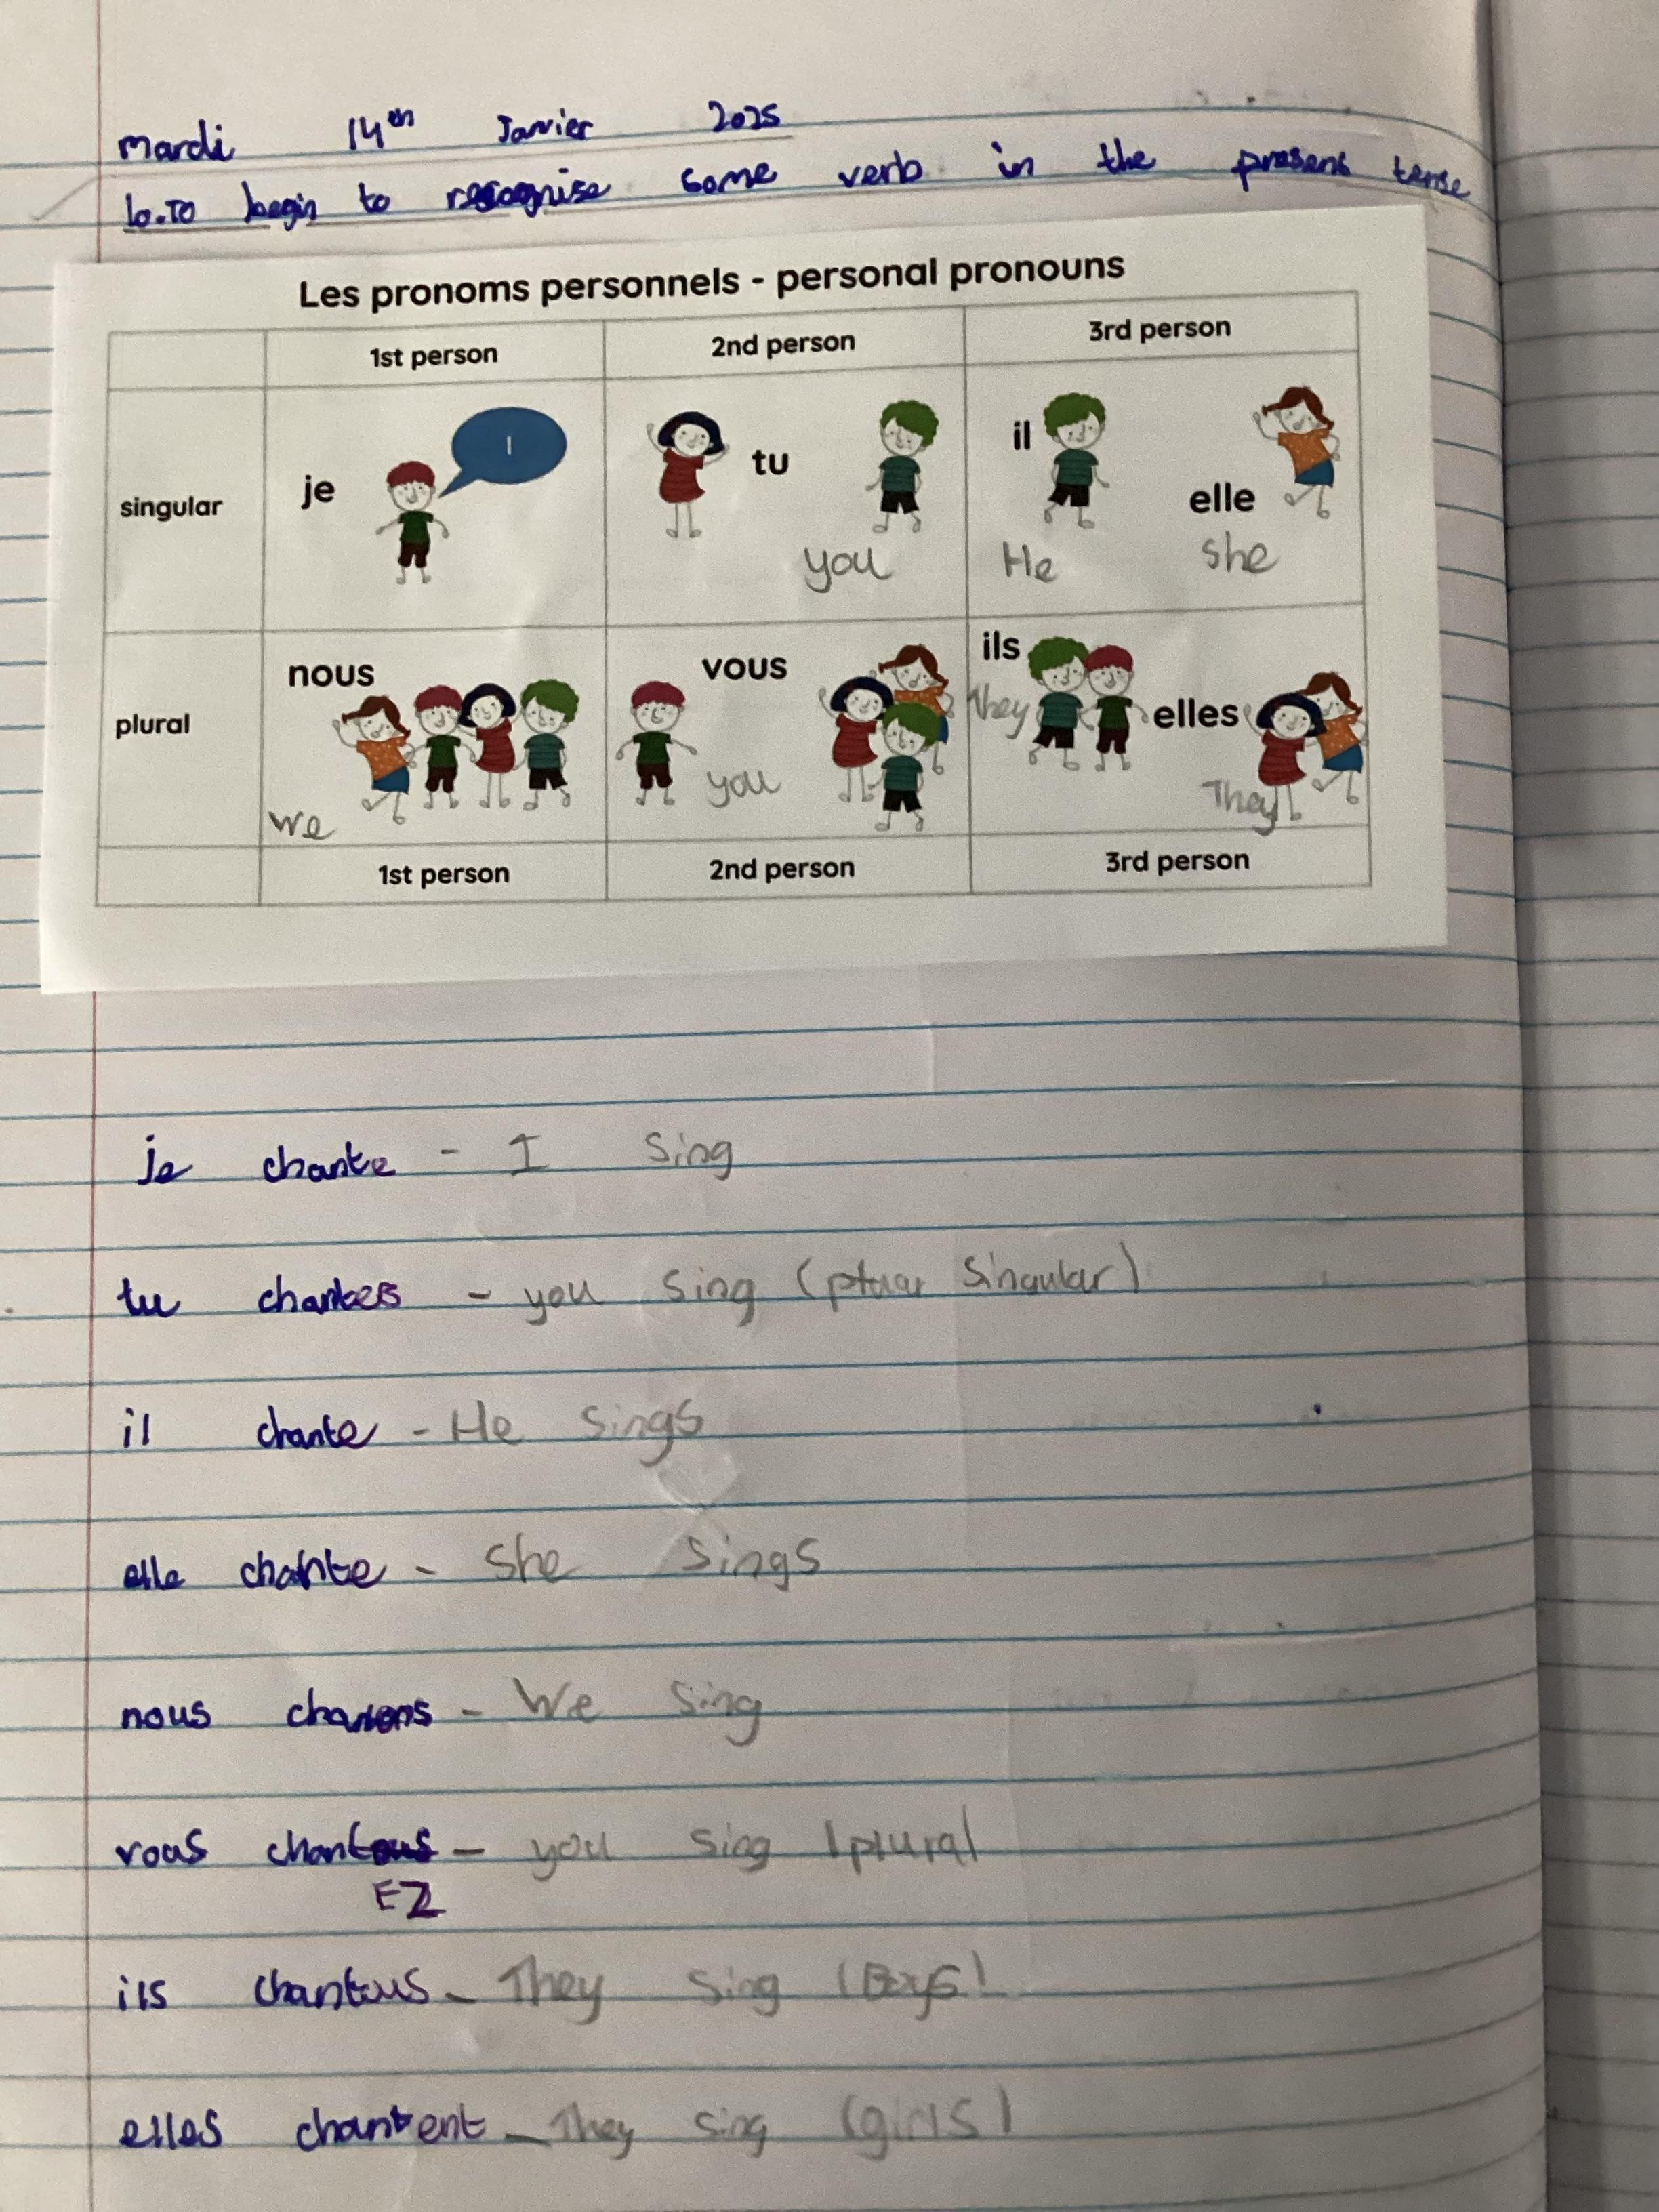 mardi 14th Janvier 2025
lo.TO begin to recognise some verb in the present tense
Les pronoms personnels - personal pronouns
1st person 2nd person 3rd person
singular je I tu you il He elle she
plural nous We vous you ils They elles They
1st person 2nd person 3rd person
je chante - I sing
tu chantes - you sing ( singular)
il chante - He sings
elle chante - She sings
nous - We sing
vous chantous - you sing (plural
EZ
ils chantous - They sing (Boys)
elles chantent - They sing (girls)